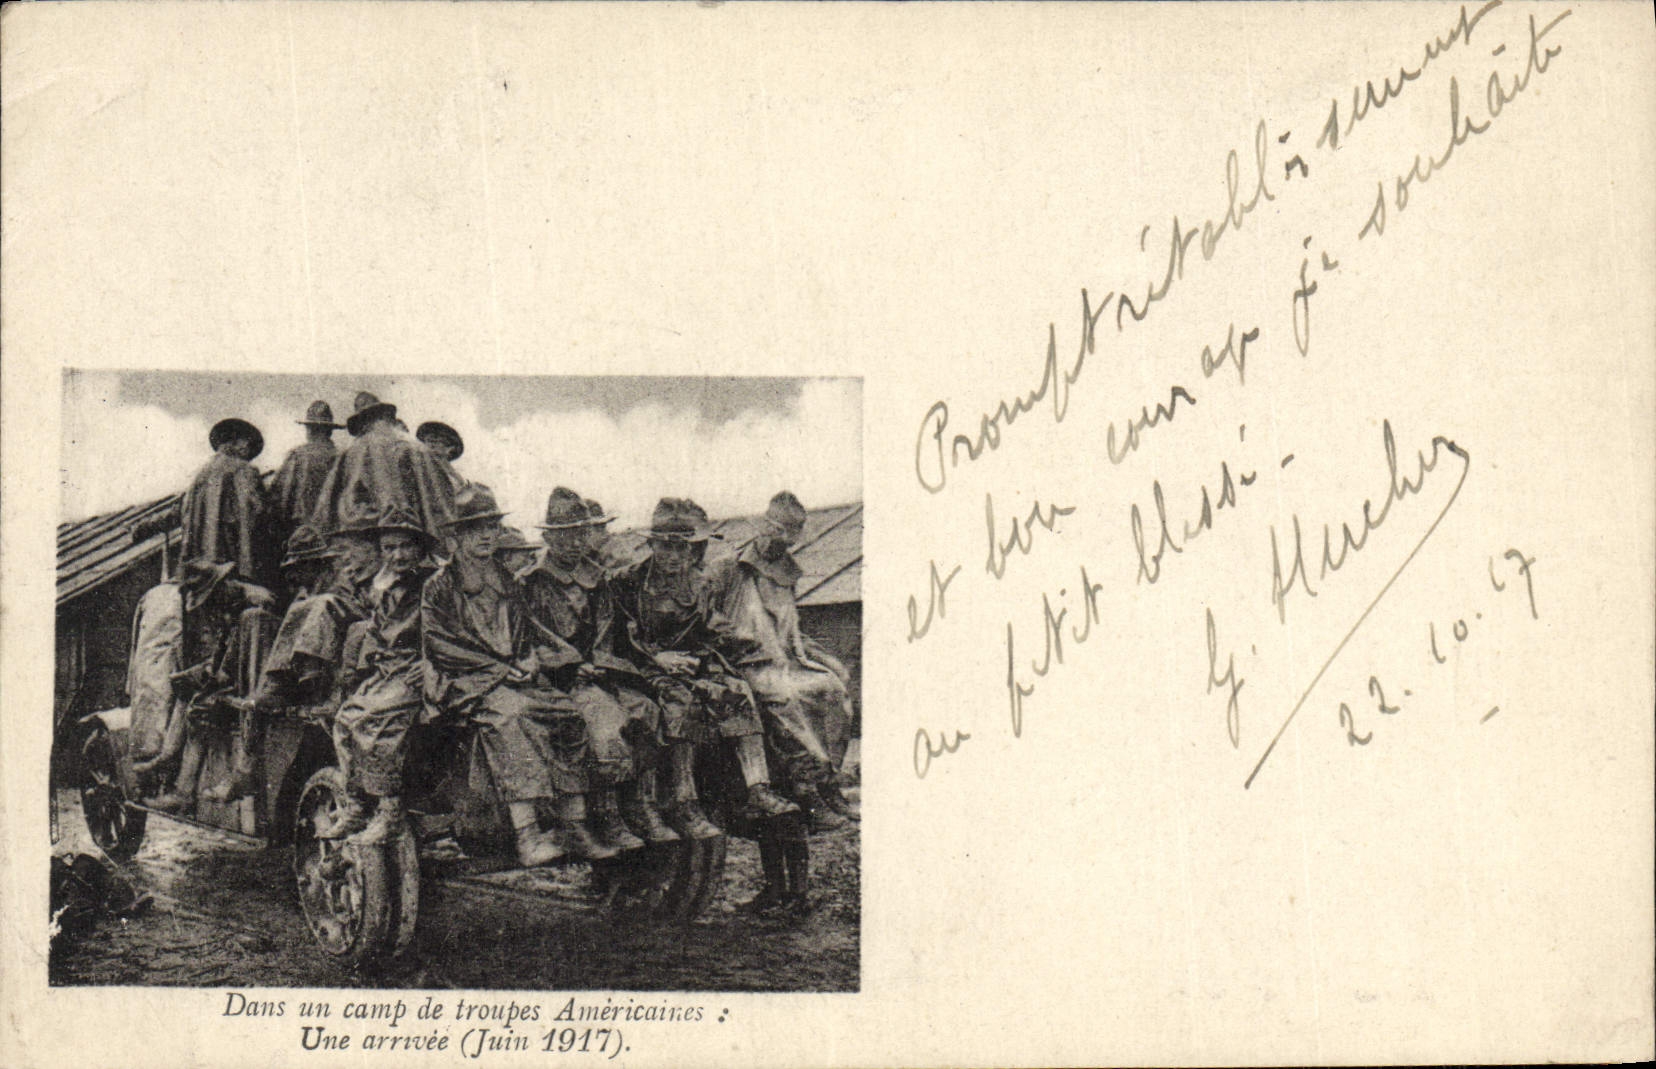 Prompt rétablissement
et bon courage je souhaite
au petit blessé -
22.10.17
Dans un camp de troupes Américaines :
Une arrivée (Juin 1917).